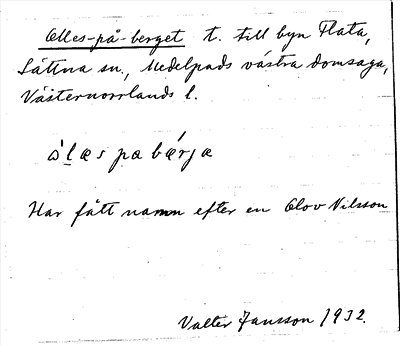 Olles-på-berget t. till byn Flata,
Lättna sn., Medelpads västra domsaga,
Västernorrlands l.
ò̀læs pa bǽrja
Har fått namn efter en Olov Nilsson
Valter Jansson 1932.